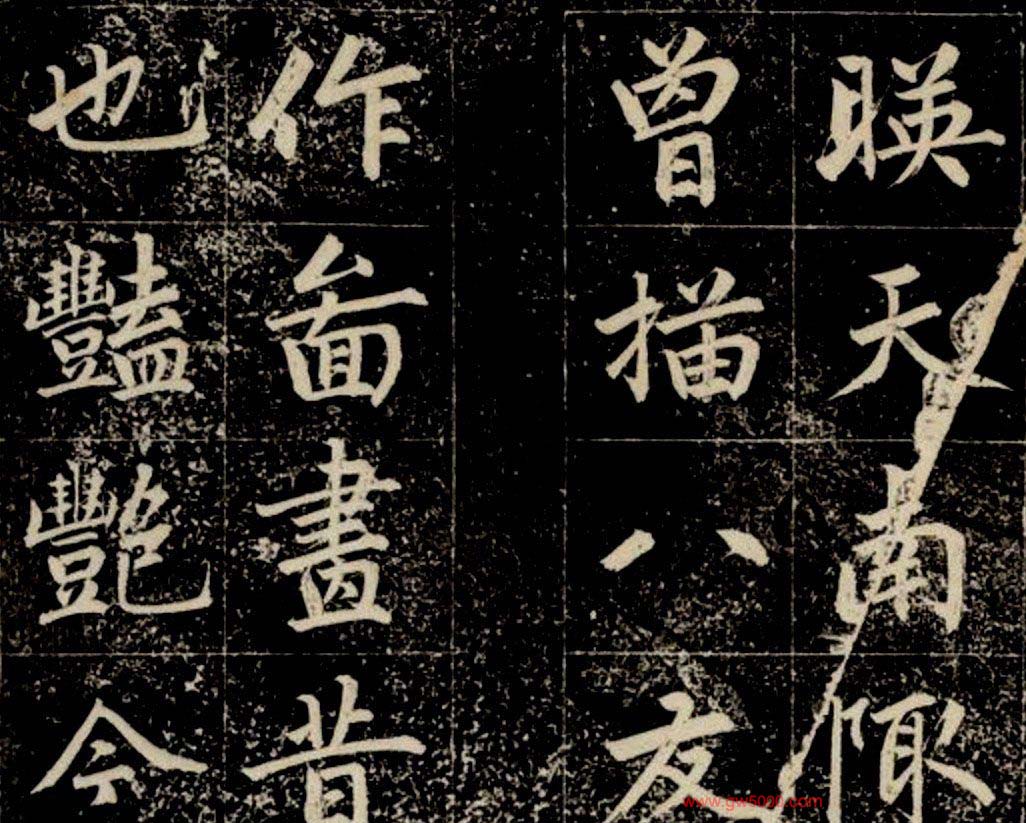 暎天南
曾描八友
作畫昔
也豔艷今
www.gw5000.com